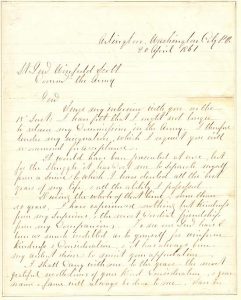 Arlington, Washington City P.O.
20 April 1861
Lt Genl Winfield Scott
Commd the Army
Genl
Since my interview with you on the
18th Inst: I have felt that I ought not longer
to retain my Commission in the Army. I therefore
tender my resignation, which I request you will
recommend for acceptance.
It would have been presented at once but
for the struggle it has cost me to separate myself
from a service to which I have devoted all the best
years of my life, & all the ability I possessed.
During the whole of that time, more than
years, I have experienced nothing but kindness
from my Superiors, & the most Cordial friendship
from my Companions. To no one Genl have I
been as much indebted as to yourself for uniform
kindness & Consideration, & it has always been
my ardent desire to merit your approbation.
I shall carry with me to the grave the most
grateful recollections of your kind Consideration, & your
name & fame will always be dear to me.